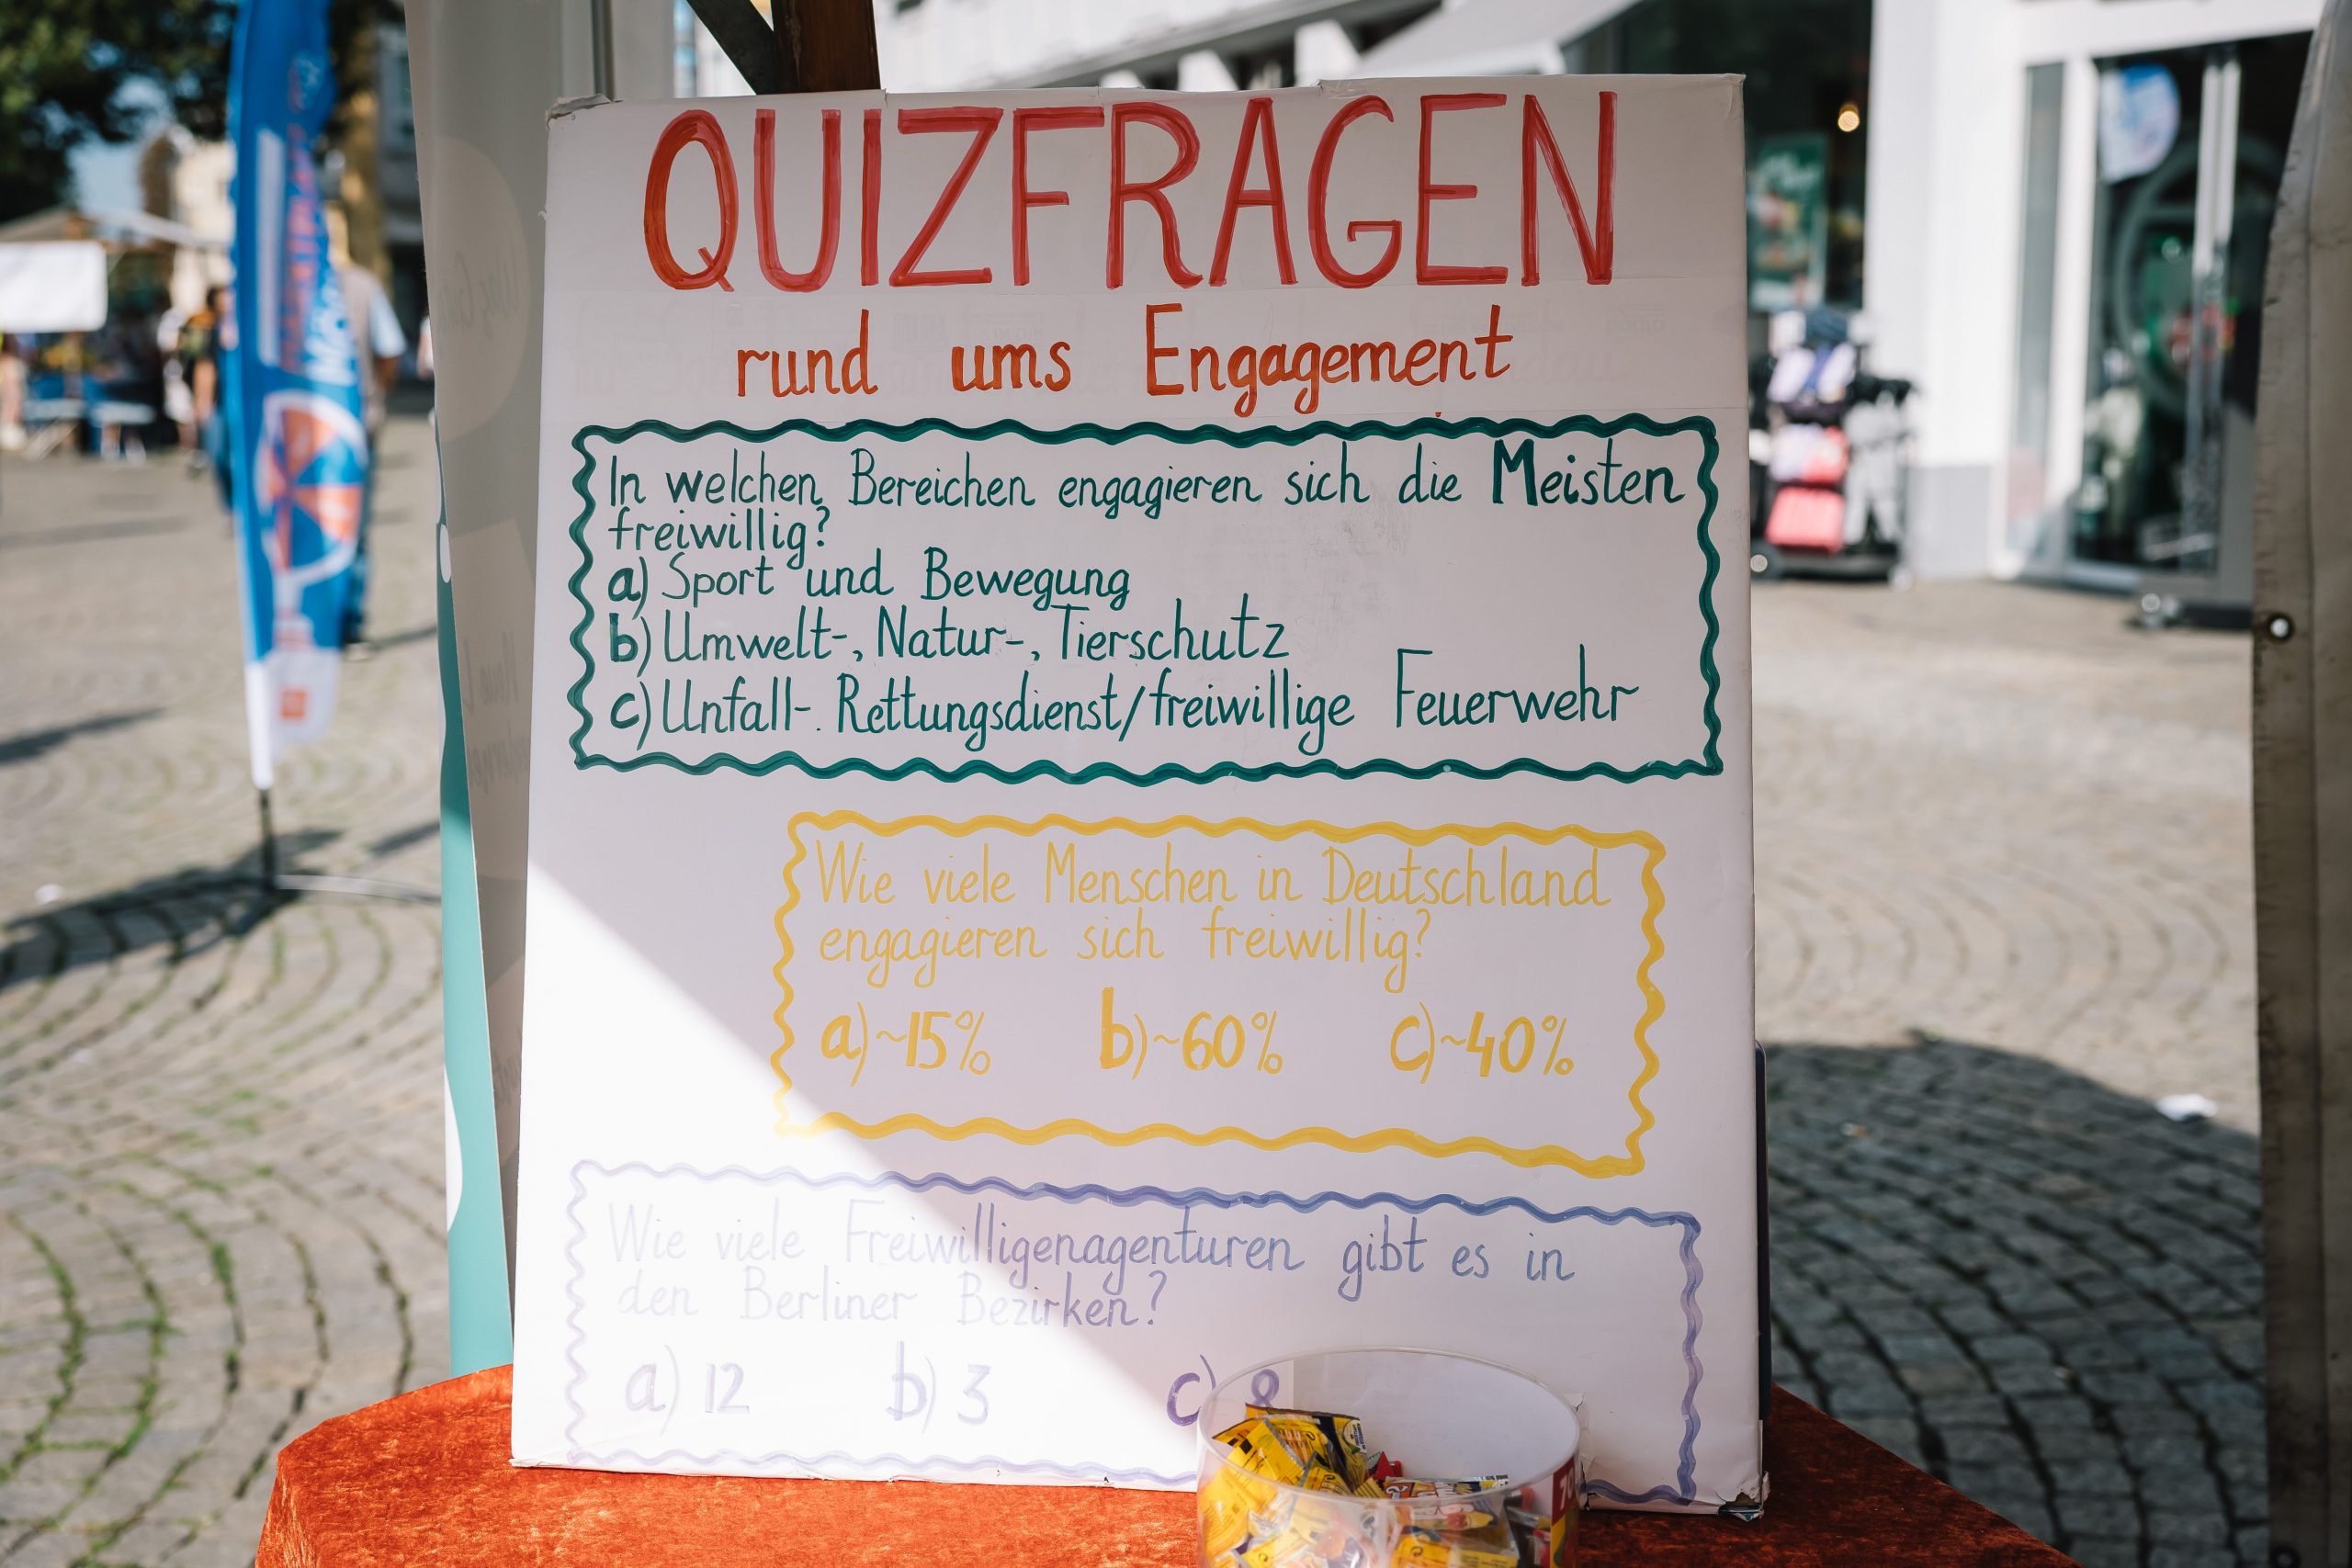 QUIZFRAGEN
rund ums Engagement
In welchen Bereichen engagieren sich die Meisten
freiwillig?
a) Sport und Bewegung
b) Umwelt-, Natur-, Tierschutz
c) Unfall-. Rettungsdienst/freiwillige Feuerwehr
Wie viele Menschen in Deutschland
engagieren sich freiwillig?
a) ~15% b) ~60% c) ~40%
Wie viele Freiwilligenagenturen gibt es in
den Berliner Bezirken?
a) 12 b) 3 c) 8